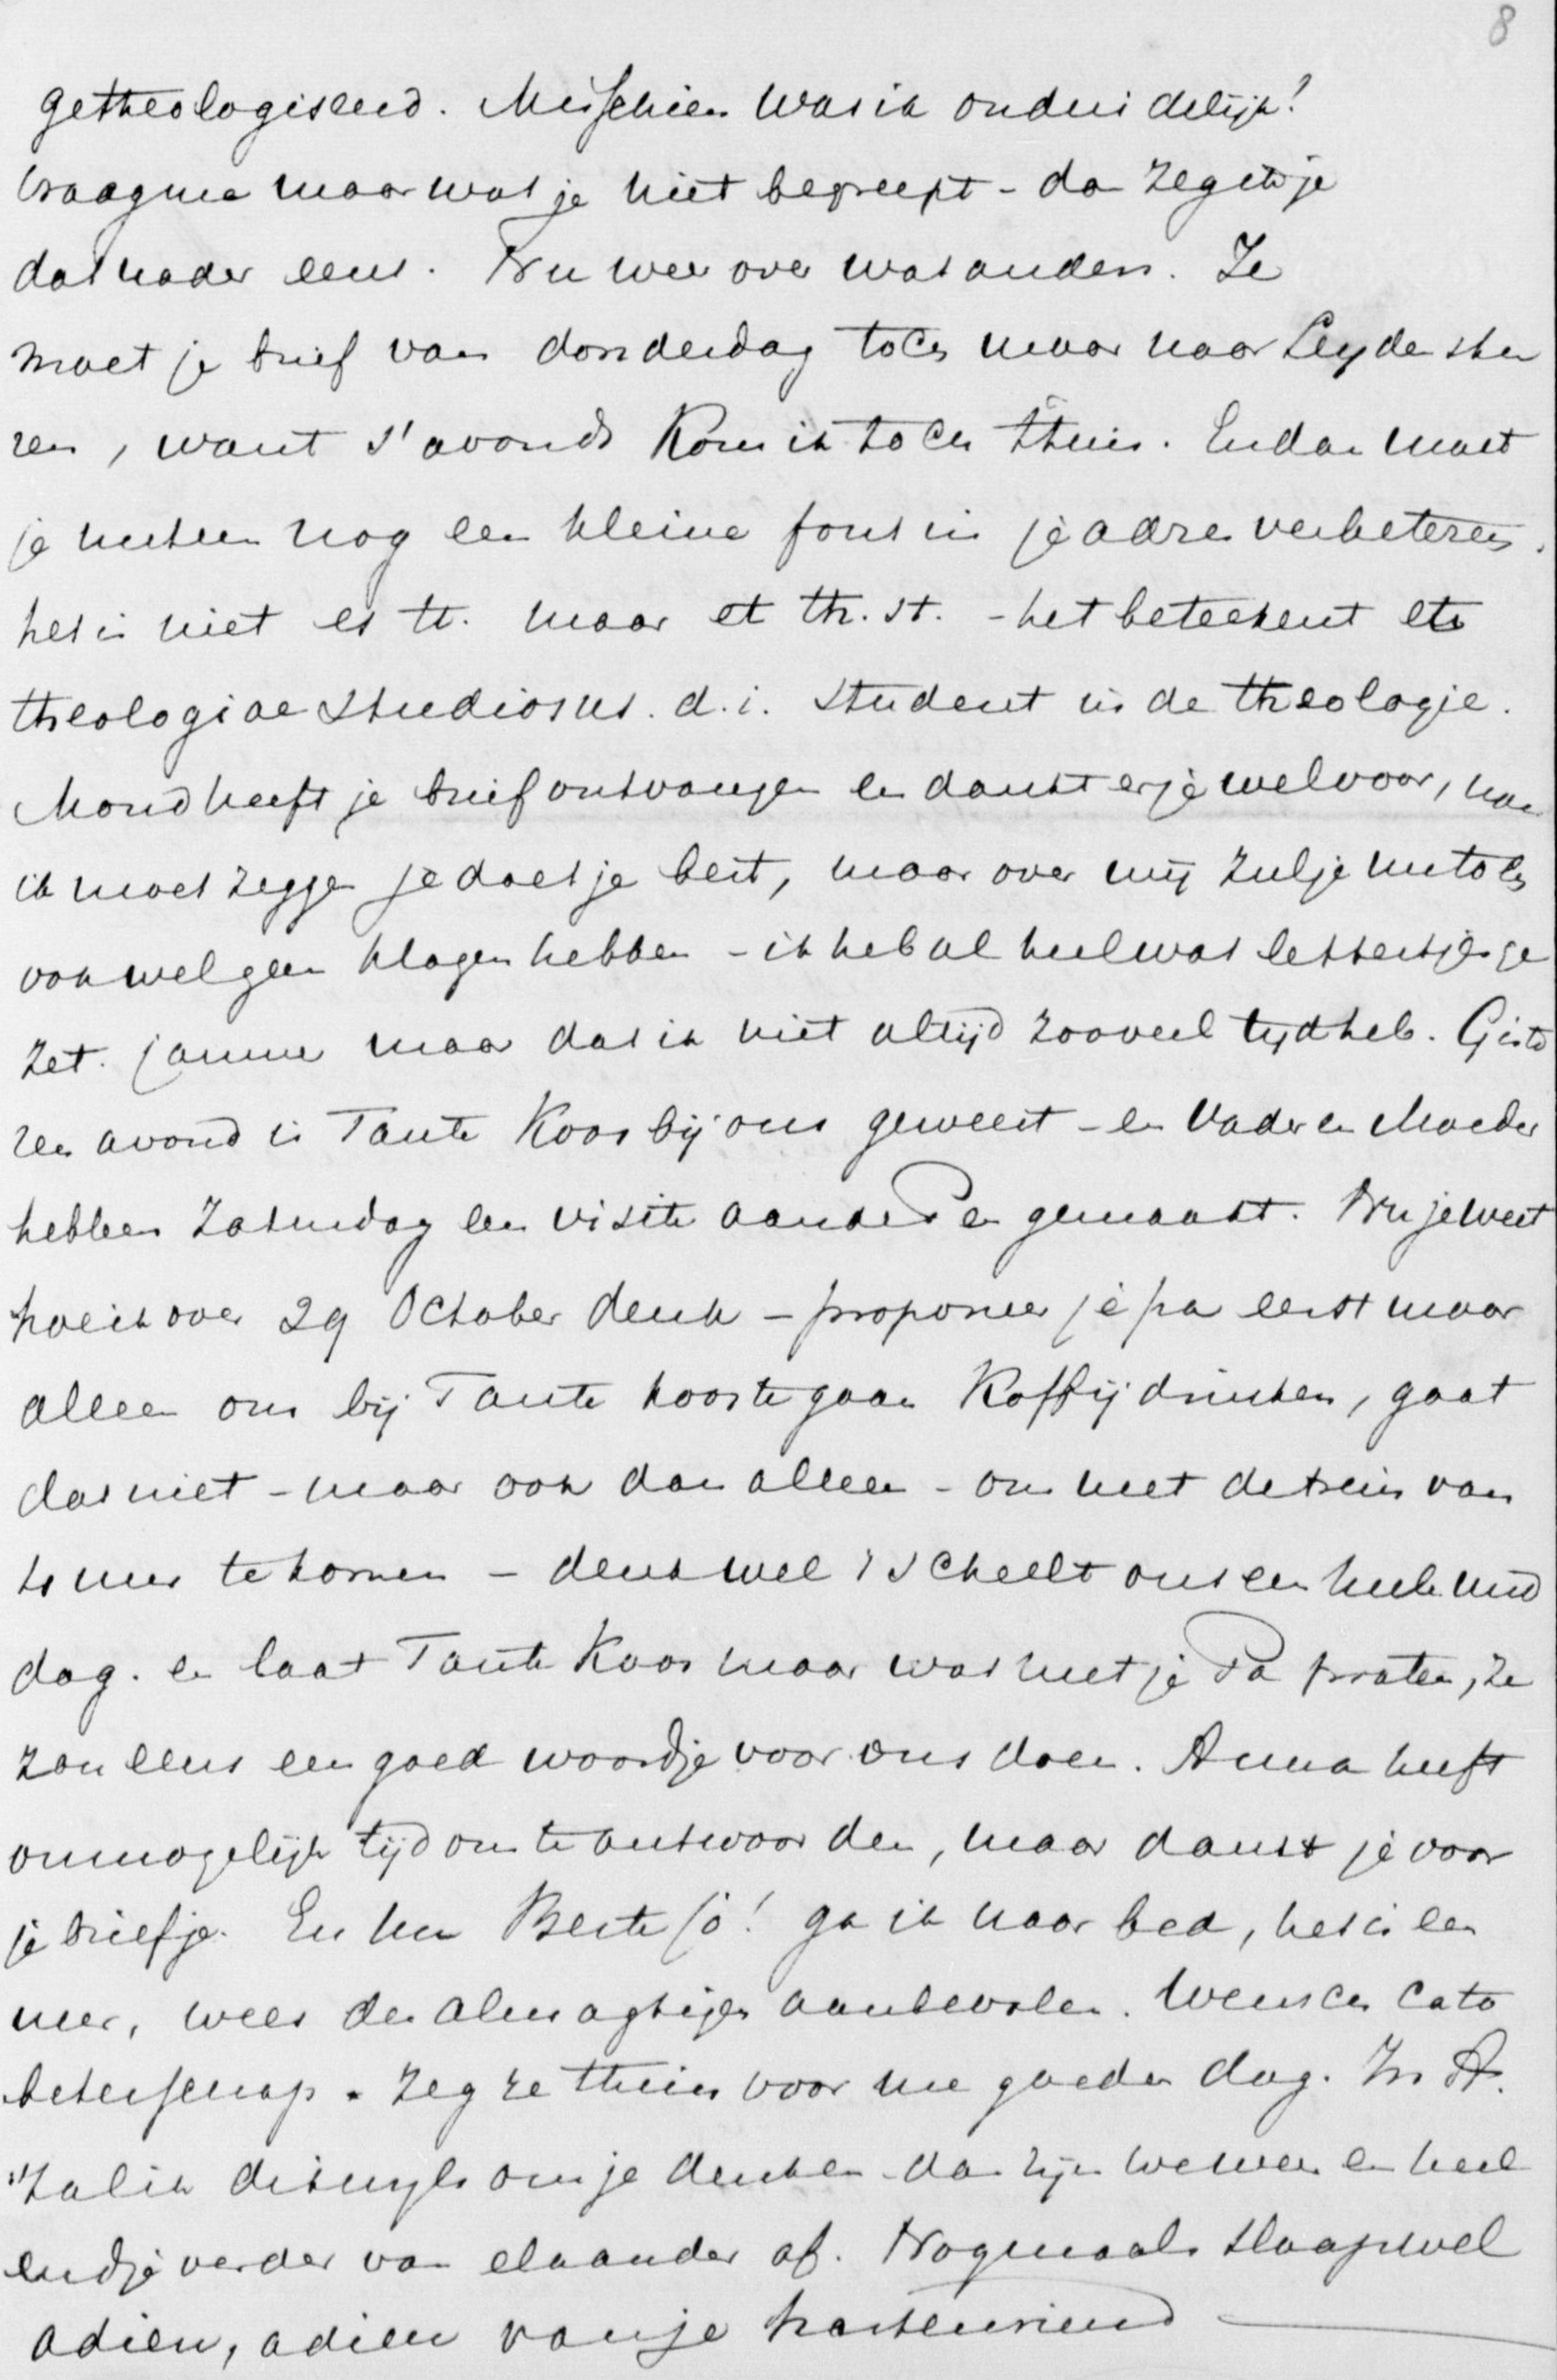 8
getheologiseerd. Misschien was ik onduidelijk?
vraag me maar wat je niet begreept - dan zeg ik je
dat nader eens. Nu weer over wat anders. Je
moet je brief van donderdag toch maar naar Leyden stu
ren, want s'avonds kom ik toch thuis. En dan moet
je meteen nog een kleine fout in je adres verbeteren.
het is niet es tt. maar et th. st. - het beteekent et
theologiae studiosus. d.i. student in de theologie.
Moud heeft je brief ontvangen en dankt er je wel voor, nou
ik moet zeggen je doet je best, maar over mij zul je nu toch
ook wel geen klagen hebben - ik heb al heel wat lettertjes ge
zet. jammer maar dat ik niet altijd zooveel tijd heb. Giste
ren avond is Tante Koos bij ons geweest - en Vader en Moeder
hebben Zaturdag een visite aan de P en gemaakt. Nu je weet
hoe ik over 29 October denk - proponeer je pa eerst maar
alleen om bij Tante Koos te gaan Koffij drinken, gaat
dat niet - maar ook dan alleen - om met de trein van
te komen - denk wel 't scheelt ons een heele mid
dag. en laat Tante Koos maar wat met je Pa praten, ze
zou eens een goed woordje voor ons doen. Anna heeft
onmogelijk tijd om te antwoorden, maar dankt je voor
je briefje. En nu Beste Jo! ga ik naar bed, het is een
uur, wees den almagtigen aanbevolen. Wensch Cato
beterschap. Zeg ze thuis voor me goeden dag. In A.
zal ik dikwijls om je denken - dan zijn we weer en heel
endje verder van elkander af. Nogmaals slaapwel
adieu, adieu van je hartenvriend